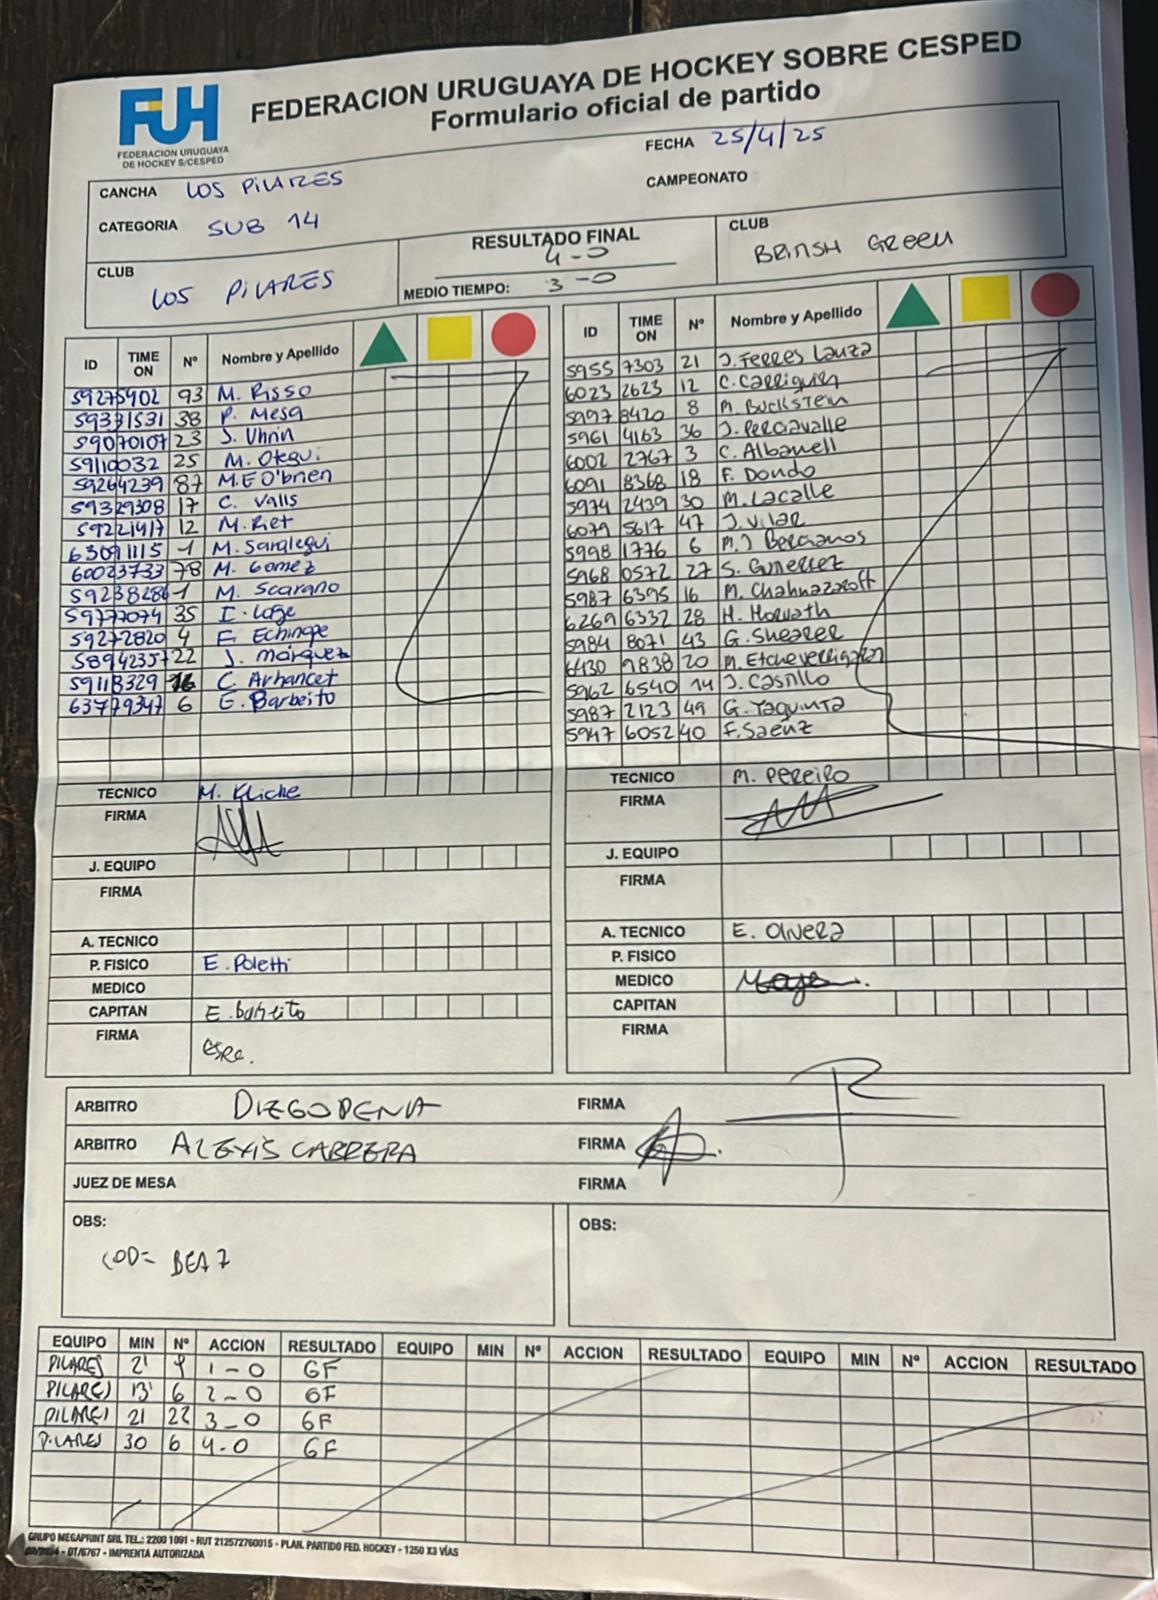 FUH
FEDERACION URUGUAYA
DE HOCKEY S/CESPED
FEDERACION URUGUAYA DE HOCKEY SOBRE CESPED
Formulario oficial de partido
CANCHA LOS PILARES
FECHA 25/4/25
CATEGORIA SUB 14
CAMPEONATO
CLUB LOS PILARES
RESULTADO FINAL 4-0
MEDIO TIEMPO: 3-0
CLUB BRITISH GREEN
ID TIME ON Nº Nombre y Apellido
59275402 93 M. Risso
59331531 38 P. Mesa
59070107 23 S. Uhrin
59110032 25 M. Otegui
59264239 87 M.E O'brien
59329308 17 C. Valls
59221417 12 M. Riet
63091115 1 M. Saralegui
60023733 78 M. Gomez
59238286 1 M. Scarano
59777074 35 I. Lage
59272820 4 E. Echinope
58942357 22 J. márquez
59118329 16 C. Arhancet
63779347 6 E. Barbeito
TECNICO M. Kliche
FIRMA
J. EQUIPO
FIRMA
A. TECNICO
P. FISICO E. Poletti
MEDICO
CAPITAN E. barbeito
FIRMA
ID TIME ON Nº Nombre y Apellido
5955 7303 21 J. Ferres Lauza
6023 2623 12 C. Carriquiry
5997 8420 8 M. Buckstein
5961 4163 36 J. Perciavalle
6002 2767 3 C. Albanell
6091 8368 18 F. Dondo
5974 2439 30 M. Lacalle
6079 5617 47 J. Vilar
5998 1776 6 M.J Bercianos
5968 0572 27 S. Gutierrez
5987 6395 16 M. Chahnazaroff
6269 6332 28 H. Horvath
5984 8071 43 G. Shearer
6430 9838 20 M. Etcheverrigaray
5962 6540 14 J. Castillo
5987 2123 49 G. Yaquinta
5947 6052 40 F. Saenz
TECNICO M. Pereiro
FIRMA
J. EQUIPO
FIRMA
A. TECNICO E. Olivera
P. FISICO
MEDICO
CAPITAN
FIRMA
ARBITRO DIEGO PENA FIRMA
ARBITRO ALEXIS CABRERA FIRMA
JUEZ DE MESA FIRMA
OBS:
COD= BEA7
OBS:
EQUIPO MIN Nº ACCION RESULTADO EQUIPO MIN Nº ACCION RESULTADO EQUIPO MIN Nº ACCION RESULTADO
PILARES 2' 1-0 GF
PILARES 13' 6 2-0 GF
PILARES 21 22 3-0 GF
PILARES 30 6 4-0 GF
GRUPO MEGAPRINT SRL TEL.: 2200 1091 - RUT 212572760015 - PLAN. PARTIDO FED. HOCKEY - 1250 X3 VÍAS
- OT/6767 - IMPRENTA AUTORIZADA